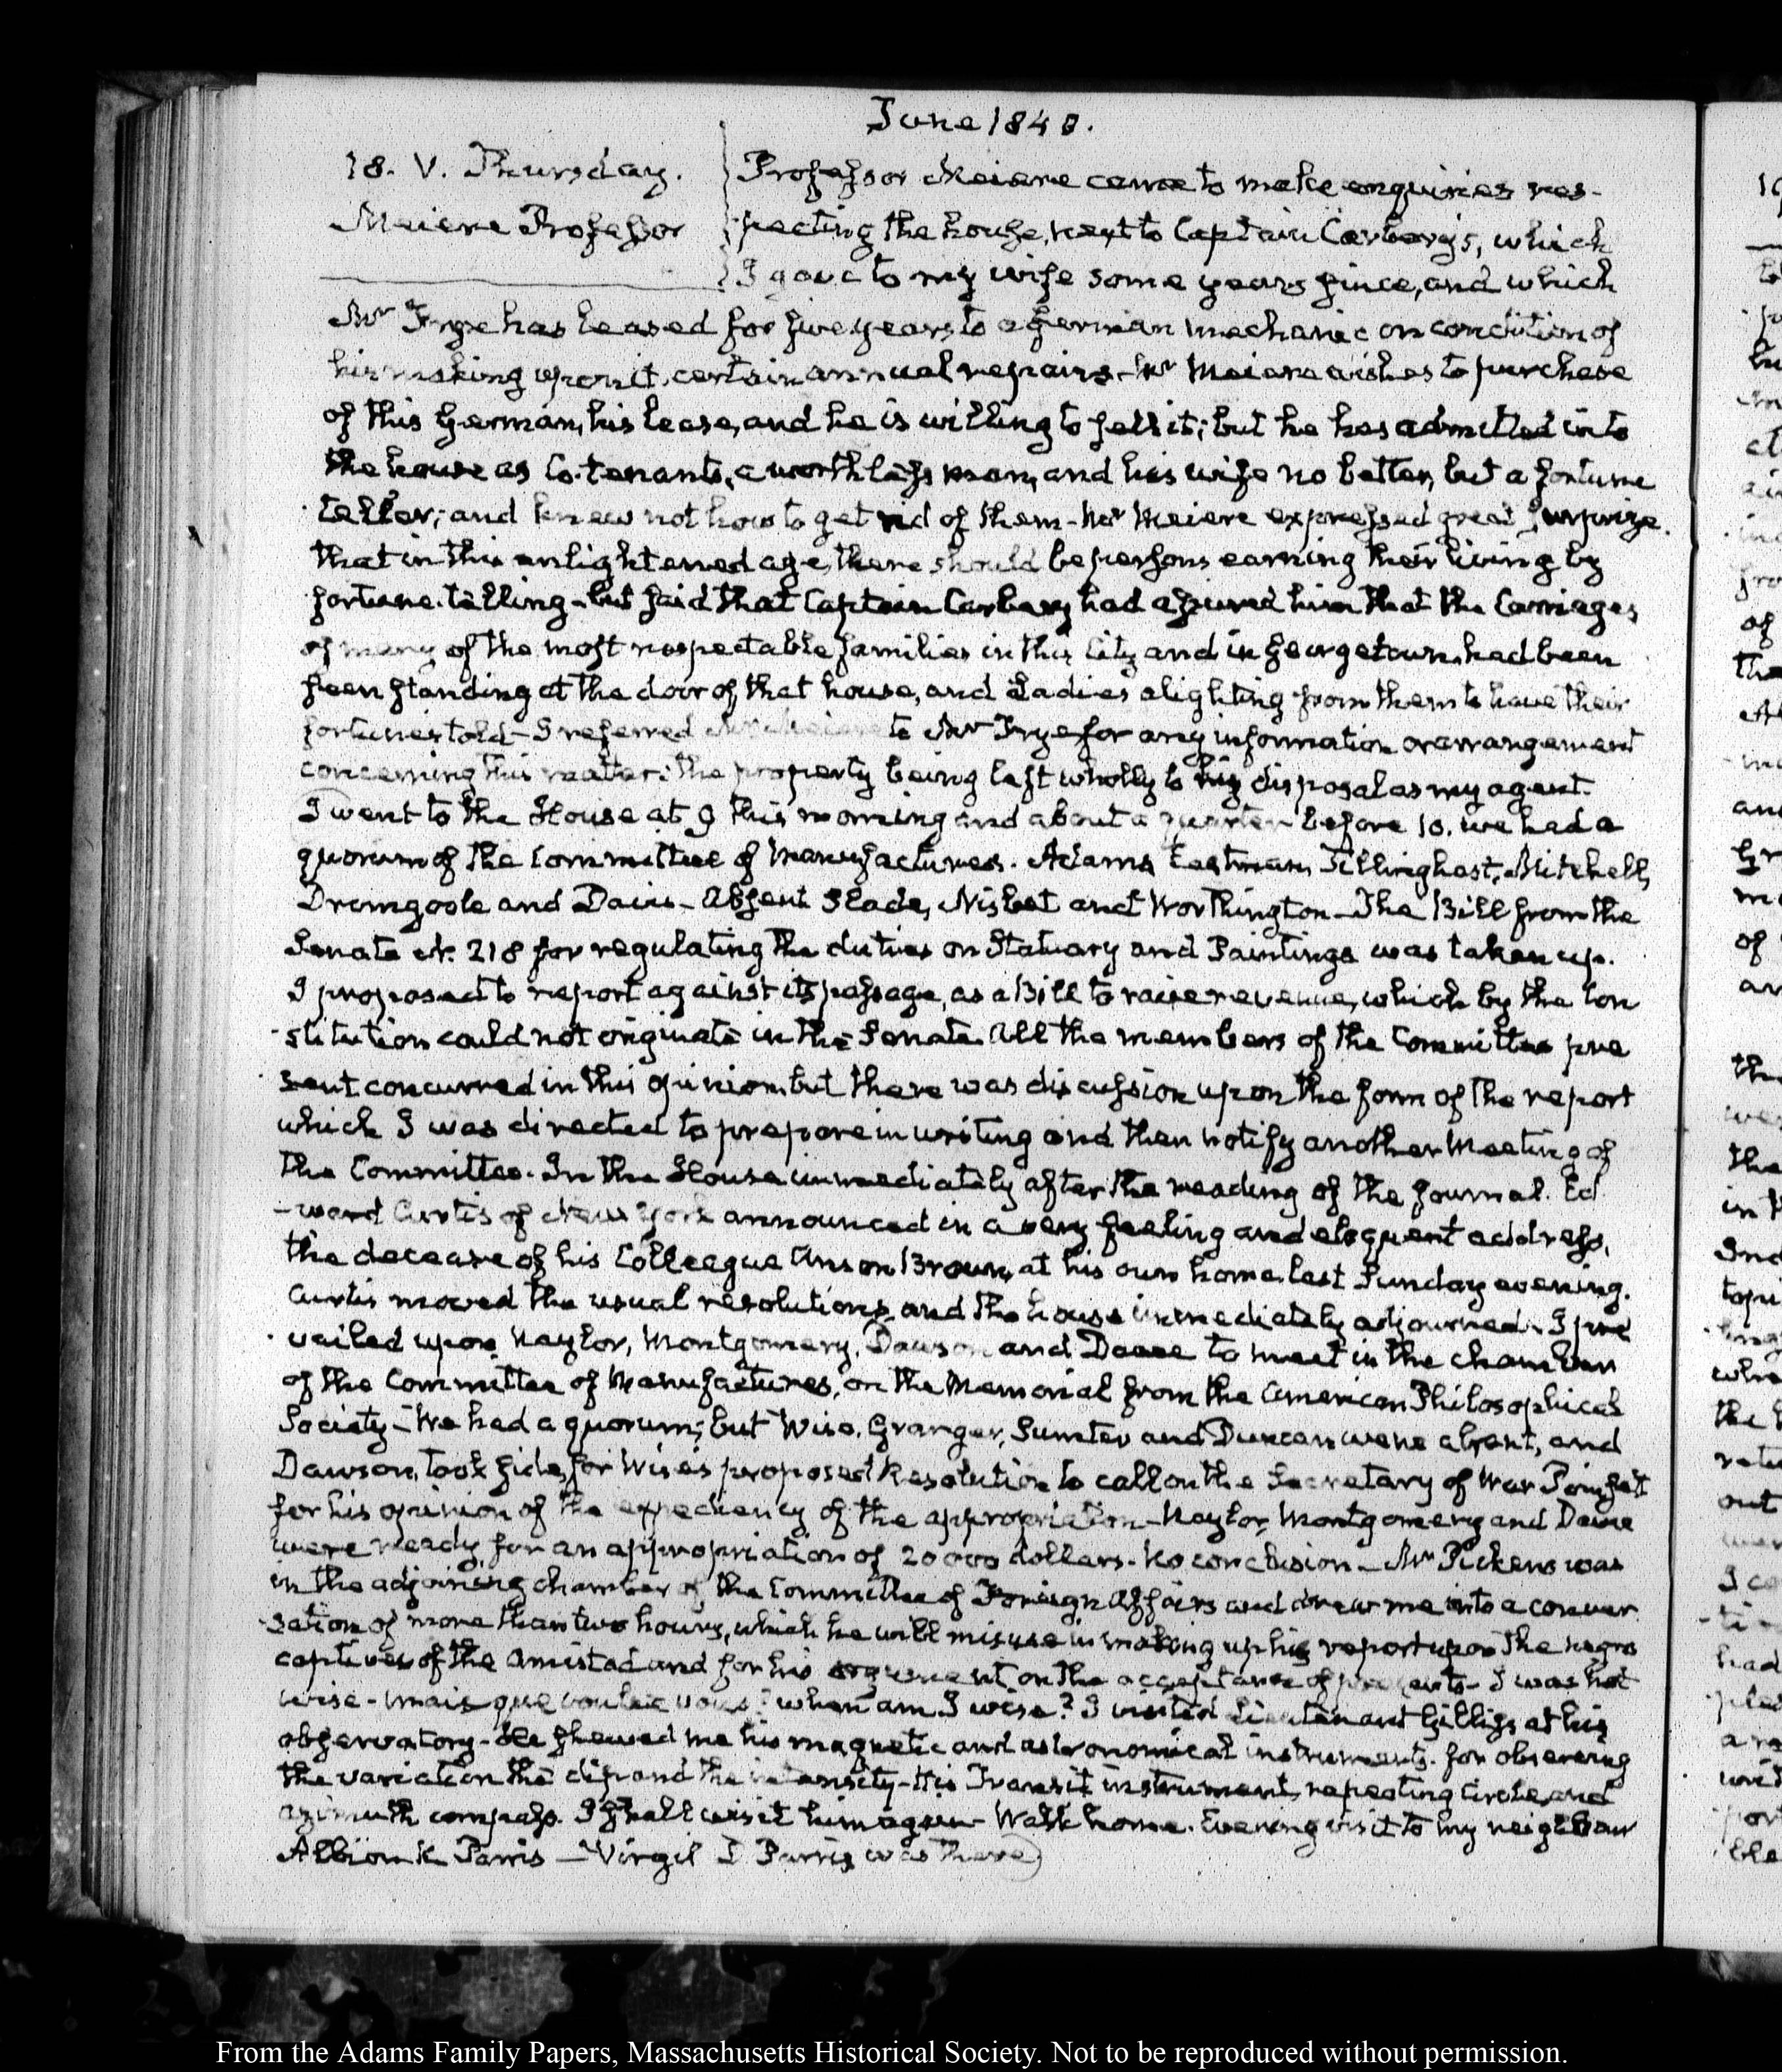 June 1840.
18. V. Thursday.
Meiere Professor
Professor Meiere came to make enquiries res-
pecting the house, next to Captain Carbery's, which
I gave to my wife some years since, and which
Mr Frye has leased for five years to a German mechanic on condition of
his making upon it, certain annual repairs - Mr Meiere wishes to purchase
of this German, his lease, and he is willing to sell it; but he has admitted into
the house as Co-tenants, a worthless man, and his wife no better, but a fortune
teller; and knows not how to get rid of them - Mr Meiere expressed great surprize
that in this enlightened age, there should be persons earning their living by
fortune-telling - but said that Captain Carbery had assured him that the Carriages
of many of the most respectable families in this City and in Georgetown had been
seen standing at the door of that house, and Ladies alighting from them to have their
fortunes told - I referred Mr Meiere to Mr Frye for any information or arrangement
concerning this matter: the property being left wholly to his disposal as my agent.
I went to the House at 9 this morning and about a quarter before 10. we had a
quorum of the Committee of Manufactures. Adams, Eastman, Tillinghast, Mitchell,
Dromgoole and Davis - Absent Slade, Nisbet and Worthington - The Bill from the
Senate N. 218 for regulating the duties on Statuary and Paintings was taken up.
I proposed to report against its passage, as a Bill to raise revenue, which by the Con
-stitution could not originate in the Senate. All the members of the Committee pre
-sent concurred in this opinion, but there was discussion upon the form of the report
which I was directed to prepare in writing and then notify another Meeting of
the Committee. In the House immediately after the reading of the Journal. Ed
-ward Curtis of New York announced in a very feeling and eloquent address,
the decease of his Colleague Anson Brown, at his own home last Sunday evening.
Curtis moved the usual resolutions, and the house immediately adjourned. I pre
-vailed upon Naylor, Montgomery, Dawson and Doane to meet in the chamber
of the Committee of Manufactures, on the Memorial from the American Philosophical
Society - We had a quorum; but Wise, Granger, Sumter and Duncan were absent, and
Dawson, took side, for Wise's proposed Resolution to call on the Secretary of War Poinsett
for his opinion of the expediency of the appropriation - Naylor, Montgomery and Doane
were ready for an appropriation of 20000 dollars. No conclusion - Mr Pickens was
in the adjoining chamber of the Committee of Foreign Affairs and drew me into a conver
-sation of more than two hours, which he will misuse in making up his report upon the negro
captives of the Amistad and for his argument on the acceptance of presents - I was not
wise - mais que voulez vous? when am I wise? I visited Lieutenant Gilliss at his
observatory - He shewed me his magnetic and astronomical instruments. for observing
the variation the dip and the intensity - His Transit instrument, repeating Circle, and
azimuth compass. I shall visit him again - Walk home. Evening visit to my neighbour
Albion K Parris - Virgil D Parris was there
From the Adams Family Papers, Massachusetts Historical Society. Not to be reproduced without permission.